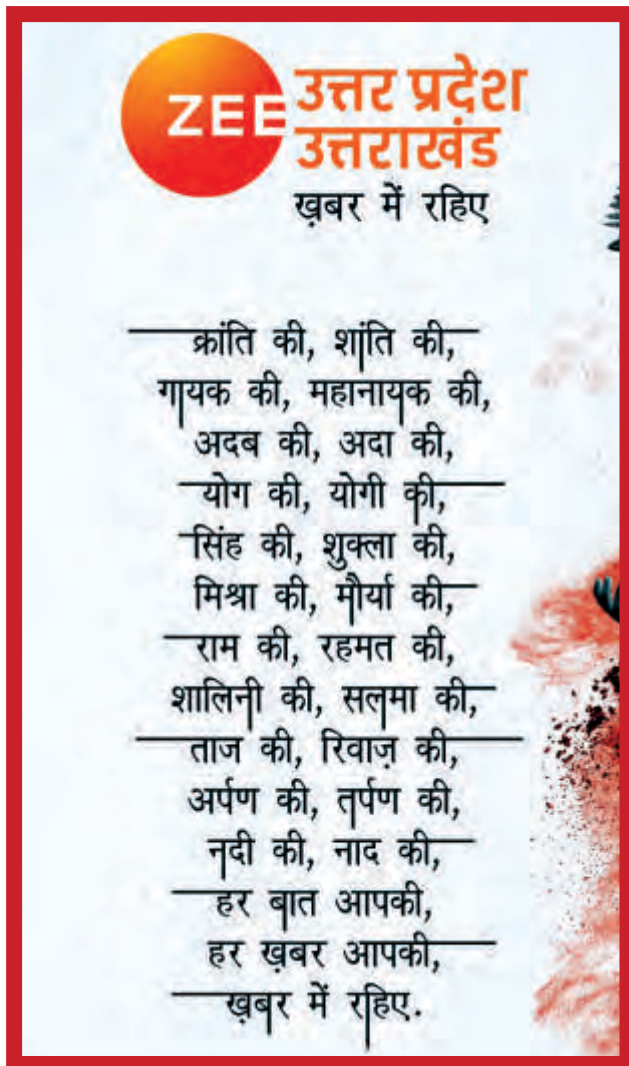 ZEE उत्तर प्रदेश
उत्तराखंड
ख़बर में रहिए
क्रांति की, शांति की,
गायक की, महानायक की,
अदब की, अदा की,
योग की, योगी की,
सिंह की, शुक्ला की,
मिश्रा की, मौर्या की,
राम की, रहमत की,
शालिनी की, सलमा की,
ताज की, रिवाज़ की,
अर्पण की, तर्पण की,
नदी की, नाद की,
हर बात आपकी,
हर ख़बर आपकी,
ख़बर में रहिए.